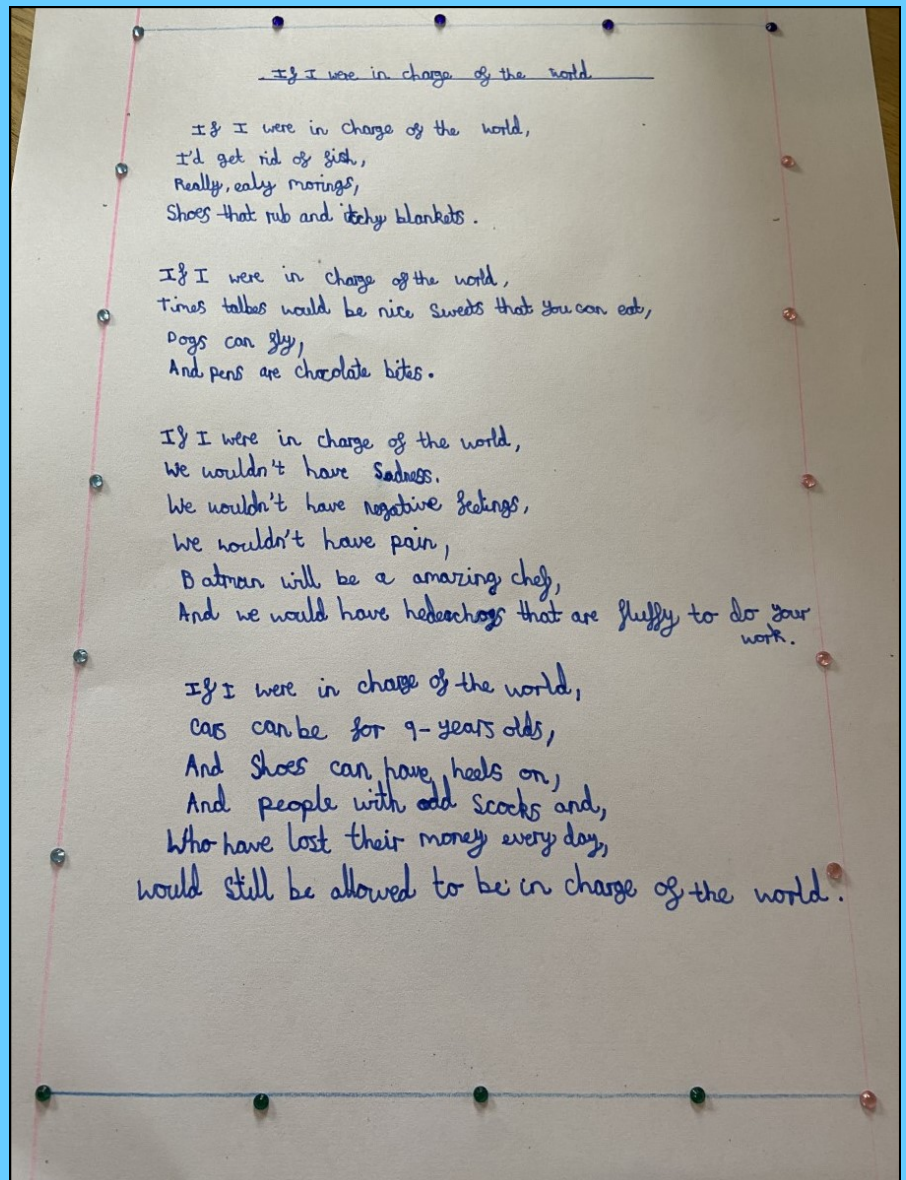 If I were in charge of the world
If I were in charge of the world,
I'd get rid of fish,
Really, ealy morings,
Shoes that rub and itchy blankets.
If I were in charge of the world,
Times talbes would be nice sweets that you can eat,
Dogs can fly,
And pens are chocolate bites.
If I were in charge of the world,
We wouldn't have Sadness.
We wouldn't have negative feelings,
We wouldn't have pain,
Batman will be a amazing chef,
And we would have hedeachogs that are fluffy to do your
work.
If I were in charge of the world,
Cars can be for 9-years olds,
And Shoes can have heels on,
And people with odd Scocks and,
Who have lost their money every day,
would still be allowed to be in charge of the world.